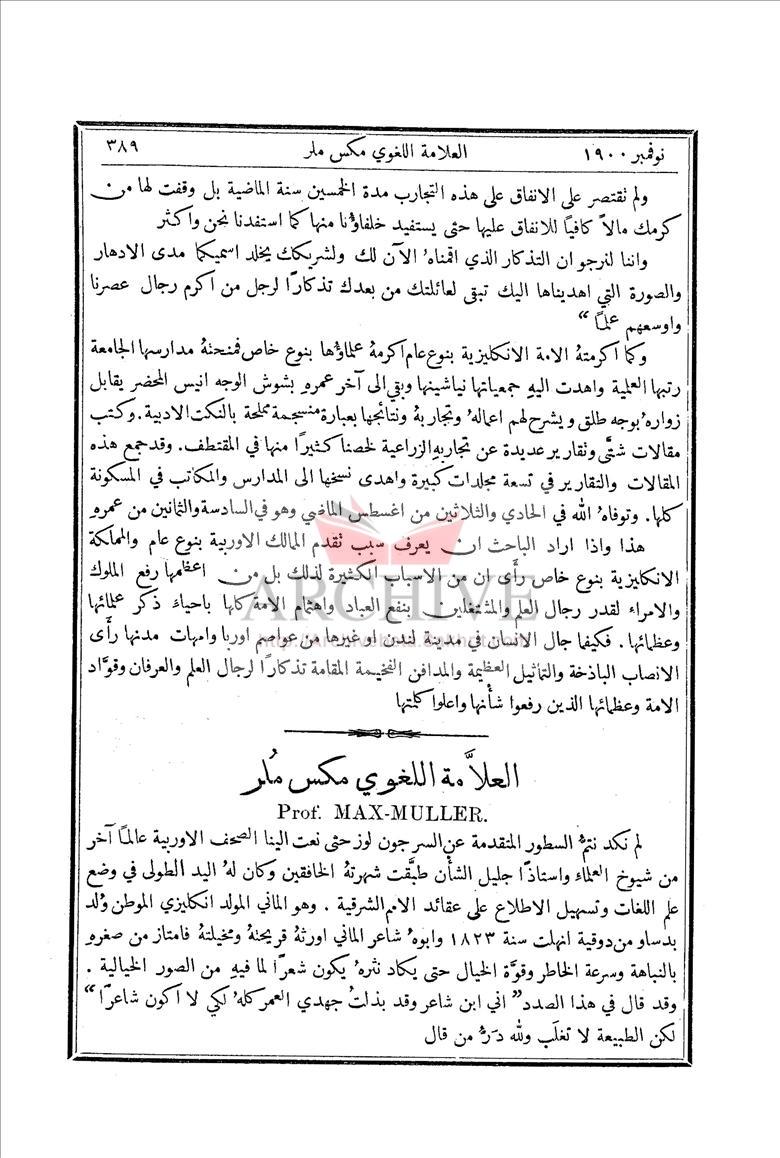 نوفمبر ١٩٠٠ العلامة اللغوي مكس ملر ٣٨٩
ولم نقتصر على الانفاق على هذه التجارب مدة الخمسين سنة الماضية بل وقفت لها من
كرمك مالاً كافياً للانفاق عليها حتى يستفيد خلفاؤنا منها كما استفدنا نحن واكثر
واننا لنرجو ان التذكار الذي اقمناهُ الآن لك ولشريكك يخلد اسميكما مدى الادهار
والصورة التي اهديناها اليك تبقى لعائلتك من بعدك تذكاراً لرجل من اكرم رجال عصرنا
واوسعهم علماً "
وكما اكرمتهُ الامة الانكليزية بنوع عام اكرمهُ علماؤها بنوع خاص فمنحتهُ مدارسها الجامعة
رتبها العلمية واهدت اليهِ جمعياتها نياشينها وبقي الى آخر عمرهِ بشوش الوجه انيس المحضر يقابل
زوارهُ بوجه طلق ويشرح لهم اعمالهُ وتجاربهُ ونتائجها بعبارة منسجمة مملحة بالنكت الادبية. وكتب
مقالات شتَّى وتقارير عديدة عن تجاربهِ الزراعية لخصنا كثيراً منها في المقتطف. وقد جمع هذه
المقالات والتقارير في تسعة مجلدات كبيرة واهدى نسخها الى المدارس والمكاتب في المسكونة
كلها. وتوفاهُ الله في الحادي والثلاثين من اغسطس الماضي وهو في السادسة والثمانين من عمرهِ
هذا واذا اراد الباحث ان يعرف سبب تقدم الممالك الاوربية بنوع عام والمملكة
الانكليزية بنوع خاص رأَى ان من الاسباب الكثيرة لذلك بل من اعظمها رفع الملوك
والامراء لقدر رجال العلم والمشتغلين بنفع العباد واهتمام الامة كلها باحياءِ ذكر علمائها
وعظمائها. فكيفما جال الانسان في مدينة لندن او غيرها من عواصم اوربا وامهات مدنها رأَى
الانصاب الباذخة والتماثيل العظيمة والمدافن الفخيمة المقامة تذكاراً لرجال العلم والعرفان وقوَّاد
الامة وعظمائها الذين رفعوا شأْنها واعلوا كلمتها
ARCHIVE
العلاَّمة اللغوي مكس مُلر
Prof. MAX-MULLER.
لم نكد نتمُّ السطور المتقدمة عن السرجون لوز حتى نعت الينا الصحف الاوربية عالماً آخر
من شيوخ العلماء واستاذاً جليل الشأْن طبَّقت شهرتهُ الخافقين وكان لهُ اليد الطولى في وضع
علم اللغات وتسهيل الاطلاع على عقائد الامم الشرقية. وهو الماني المولد انكليزي الموطن وُلد
بدساو من دوقية انهلت سنة ١٨٢٣ وابوهُ شاعر الماني اورثهُ قريحتهُ ومخيلتهُ فامتاز من صغرهِ
بالنباهة وسرعة الخاطر وقوَّة الخيال حتى يكاد نثرهُ يكون شعراً لما فيهِ من الصور الخيالية.
وقد قال في هذا الصدد "اني ابن شاعر وقد بذلتُ جهدي العمر كلهُ لكي لا اكون شاعراً"
لكن الطبيعة لا تغلَب ولله درُّ من قال